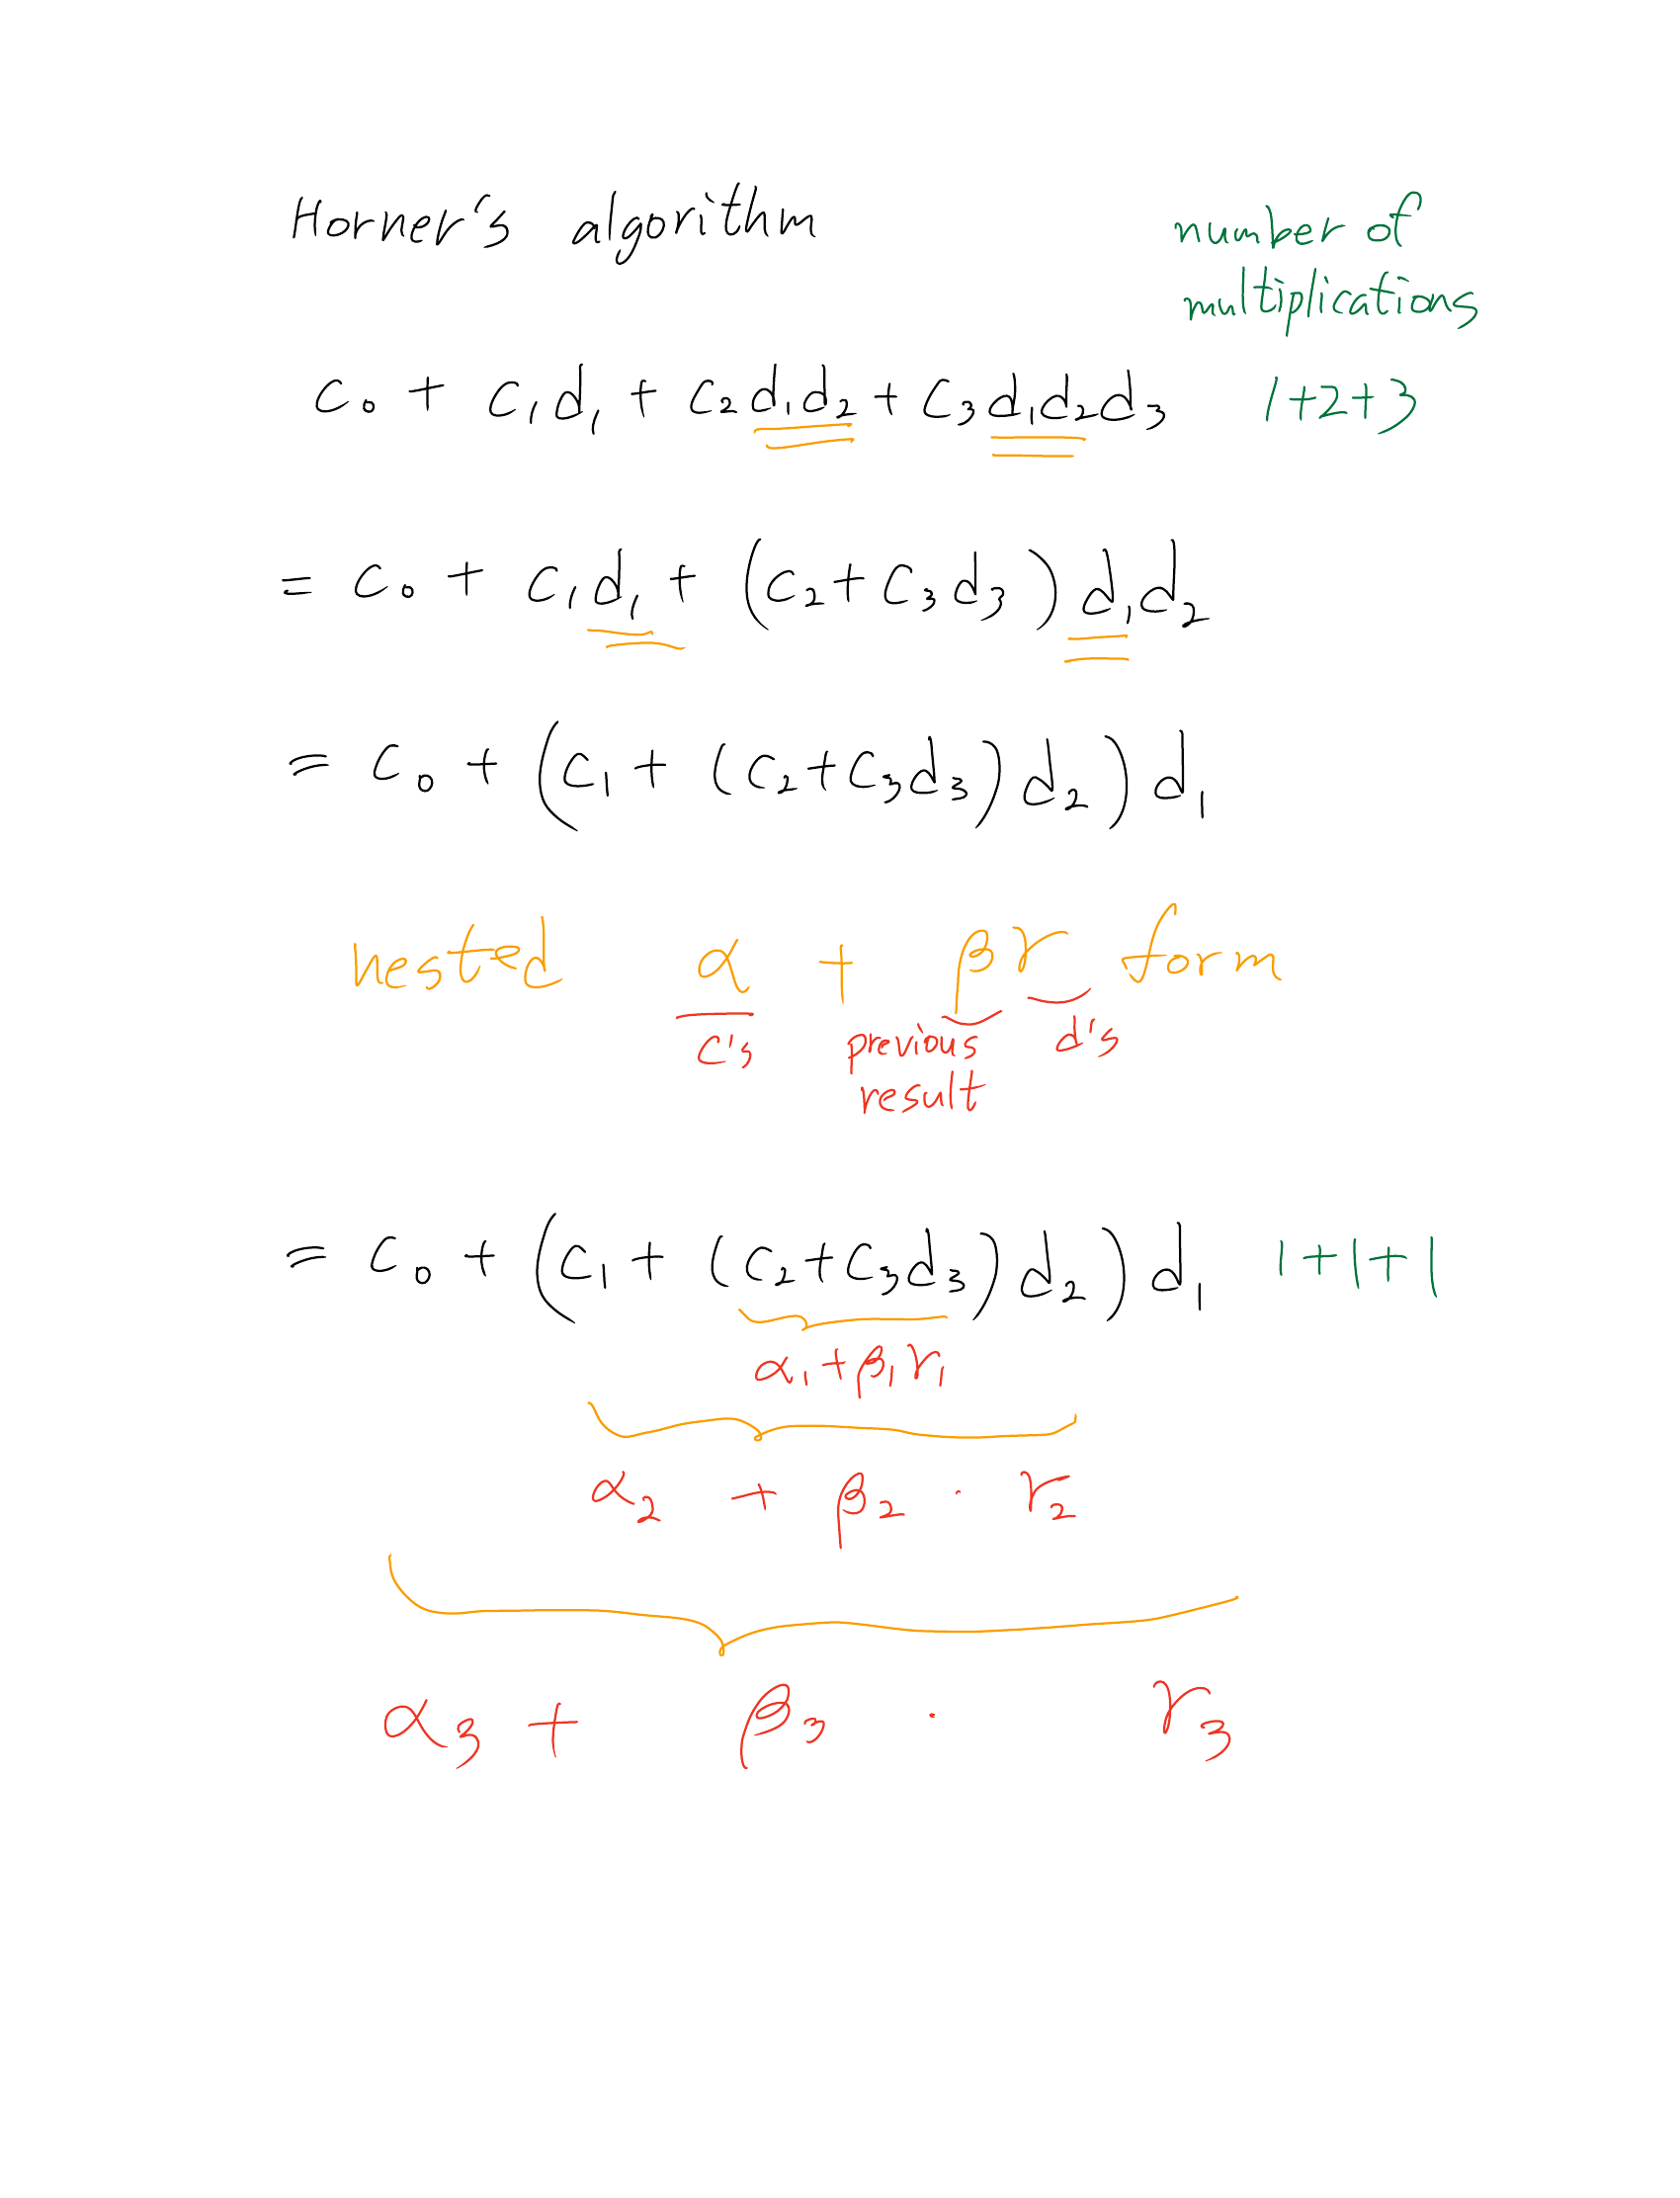 Horner's algorithm
number of
multiplications
c₀ + c₁d₁ + c₂d₁d₂ + c₃d₁d₂d₃ 1+2+3
= c₀ + c₁d₁ + (c₂+c₃d₃)d₁d₂
= c₀ + (c₁ + (c₂+c₃d₃)d₂)d₁
nested α + βγ form
c's previous d's
result
= c₀ + (c₁ + (c₂+c₃d₃)d₂)d₁ 1+1+1
α₁+β₁γ₁
α₂ + β₂ · γ₂
α₃ + β₃ · γ₃